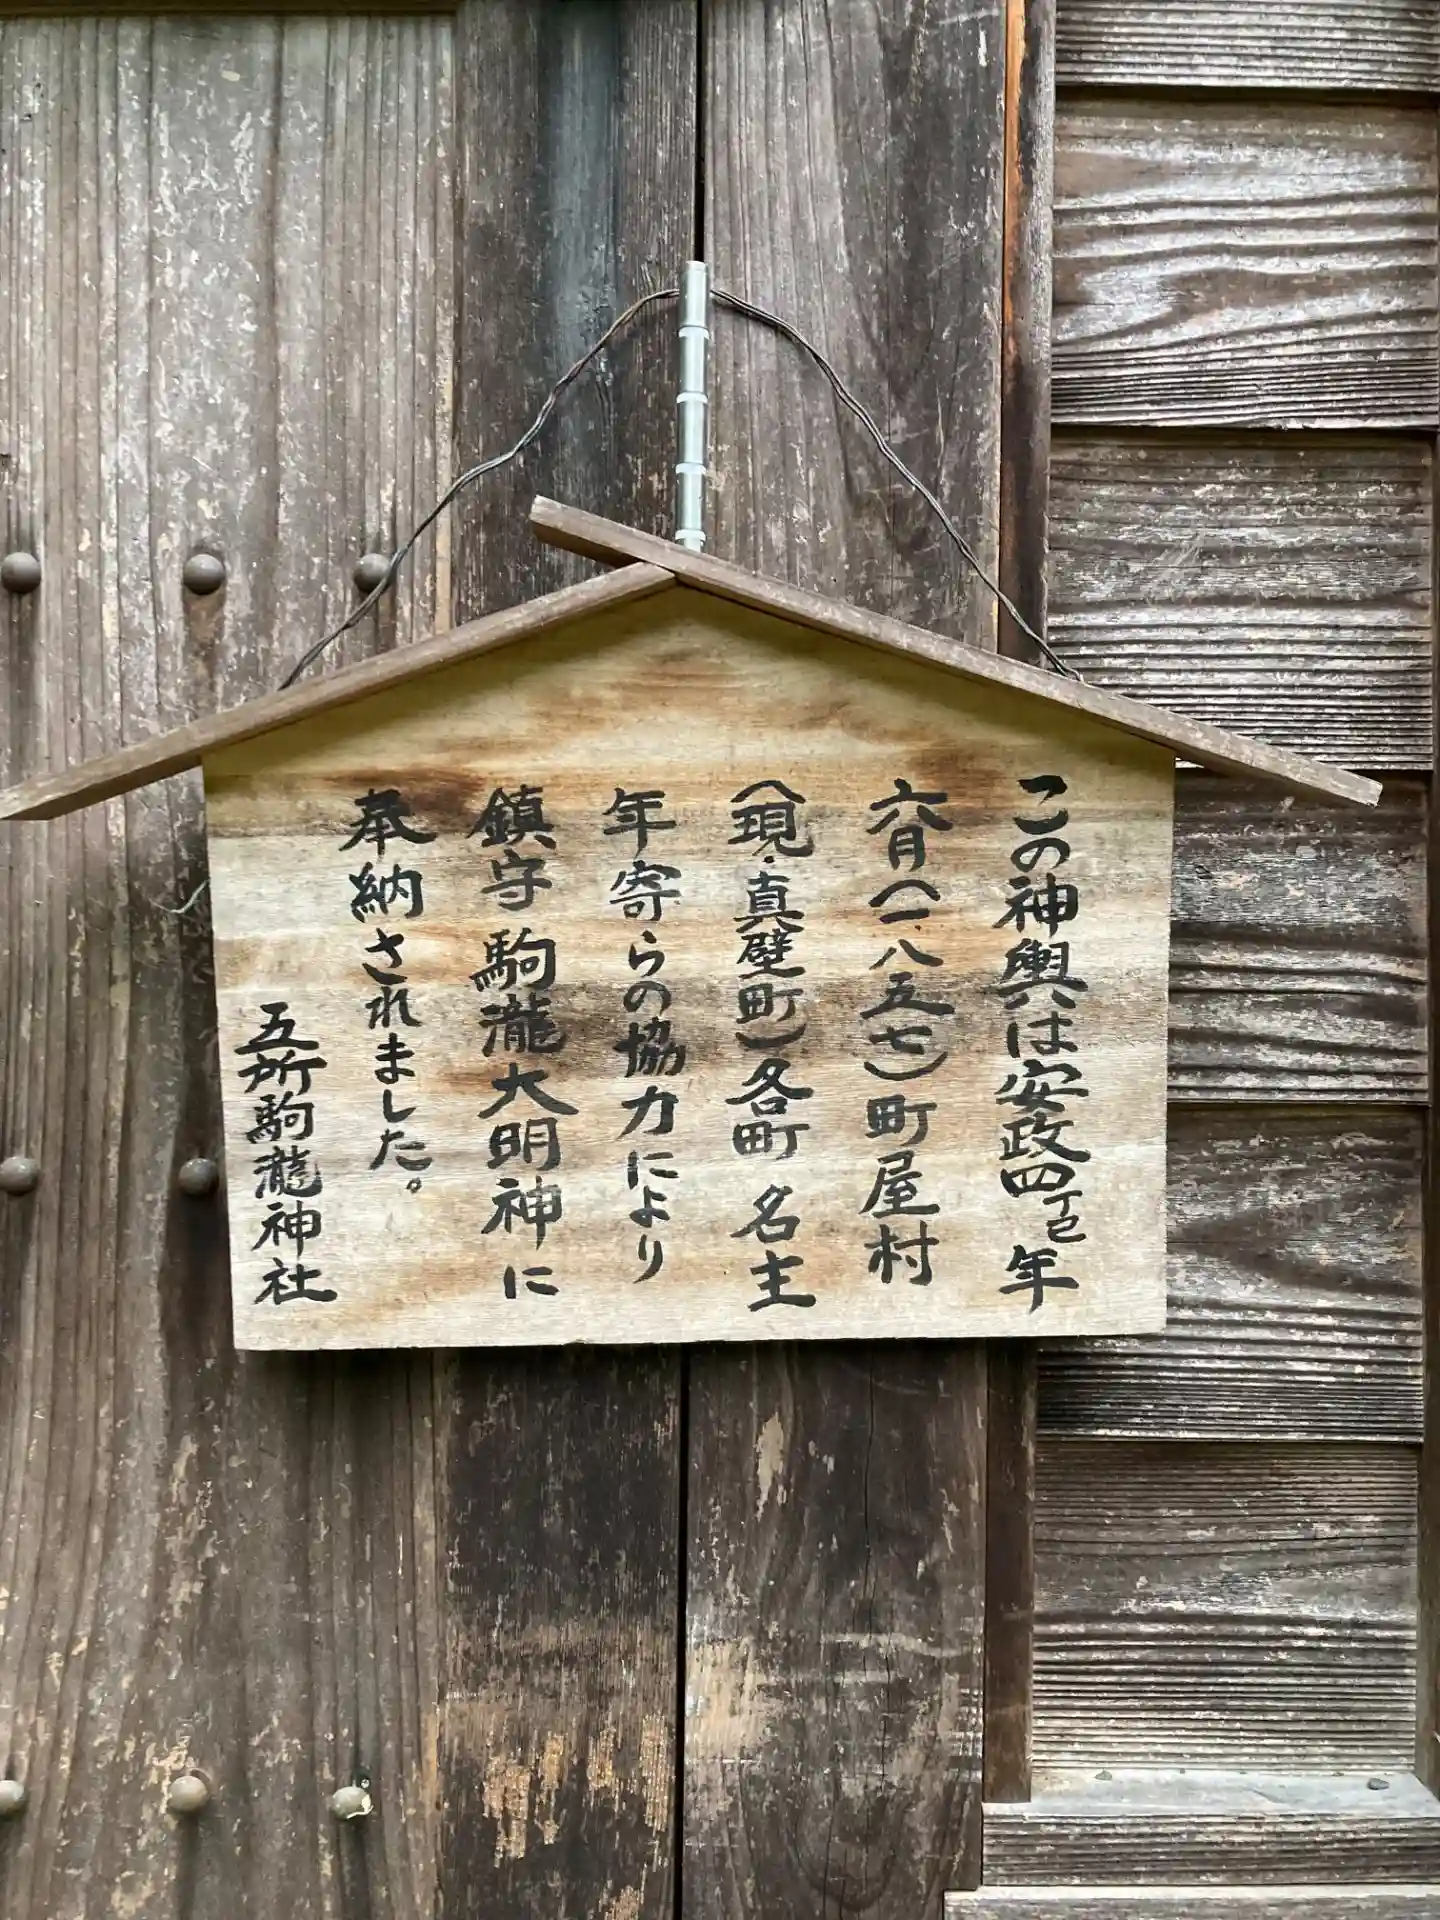 この神輿は安政四丁巳年
六月(一八五七)町屋村
(現・真壁町)各町 名主
年寄らの協力により
鎮守 駒瀧大明神に
奉納されました。
五所駒瀧神社